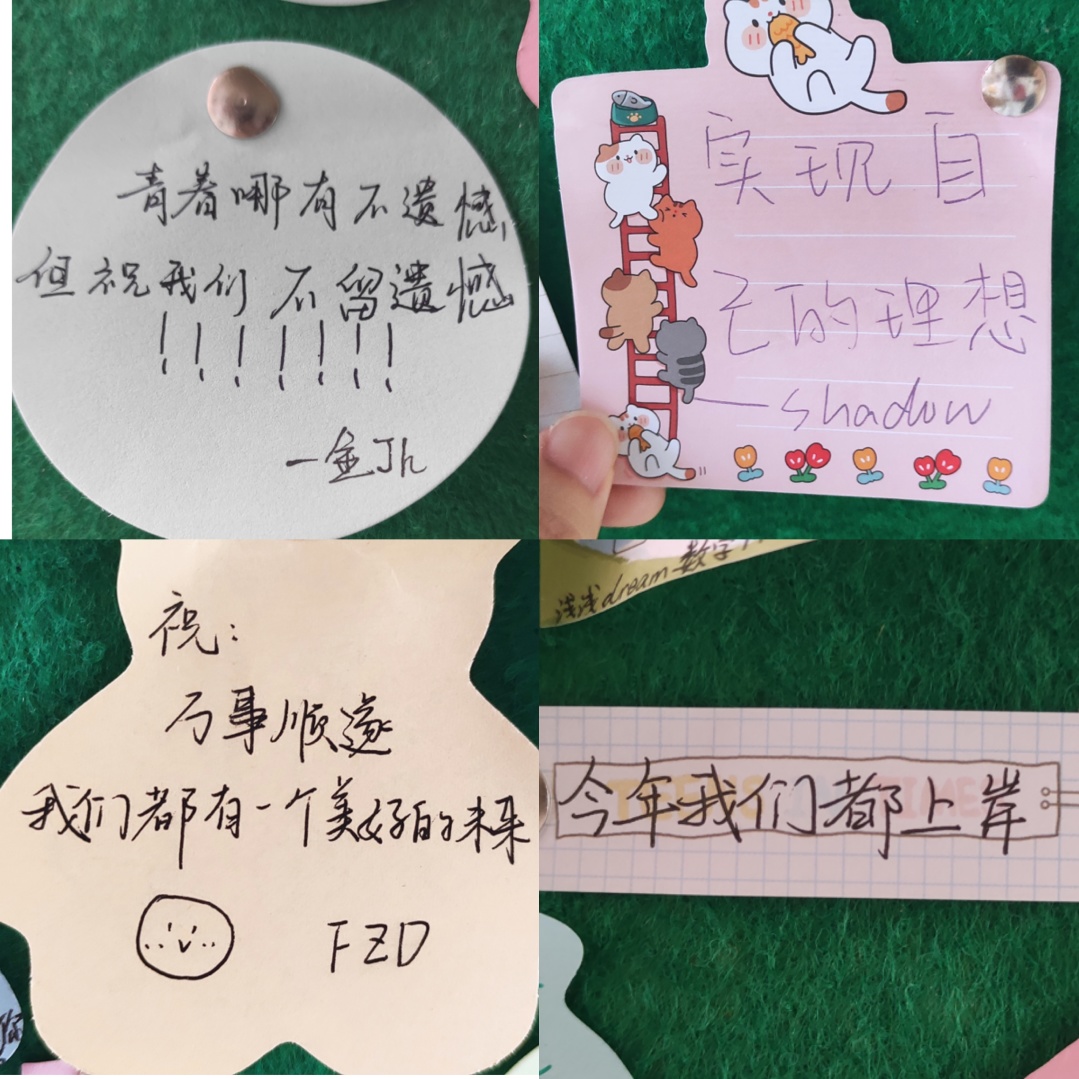 青着哪有不遗憾
但祝我们不留遗憾
!!!!!!!
—金Jh
实现自
己的理想
—shadow
祝:
万事顺遂
我们都有一个美好的未来
FZD
浅浅dream 数字
今年我们都上岸